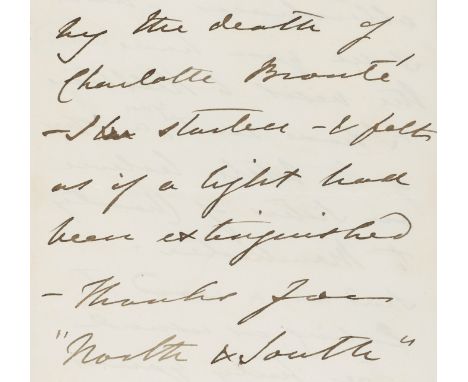 by the death of
Charlotte Bronté
- I started - I felt
as if a light had
been extinguished
- Thanks for
"North & South"